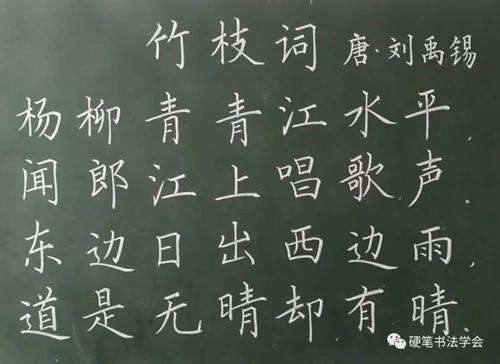 竹枝词 唐·刘禹锡
杨柳青青江水平,
闻郎江上唱歌声.
东边日出西边雨,
道是无晴却有晴.
硬笔书法学会